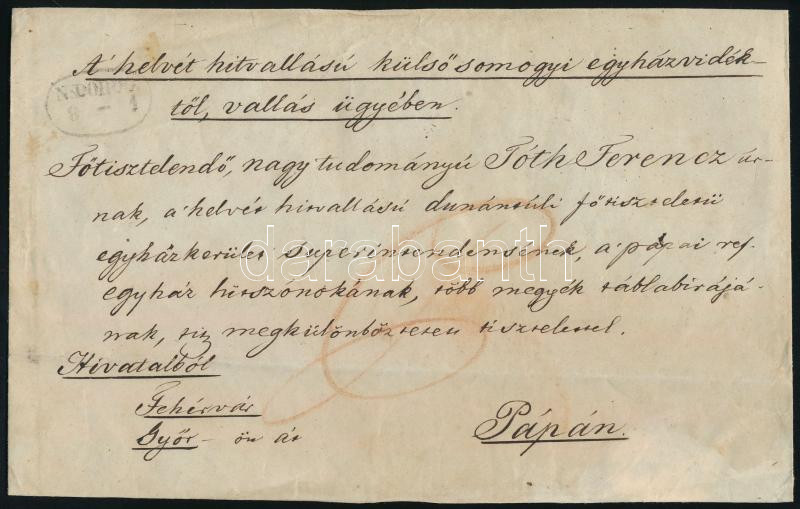 A' helvét hitvallású külső somogyi egyházvidék-
től, vallás ügyében.
Főtisztelendő, nagy tudományú Tóth Ferencz úr-
nak, a' helvét hitvallású dunántúli főtiszteletü
egyházkerület superintendensének, a' pápai ref.
egyház hitszónokának, több megyék táblabirájá-
nak, megkülönböztetett tisztelettel.
Hivatalból
Fehérvár
Győr - ön át
Pápán.
darabanth